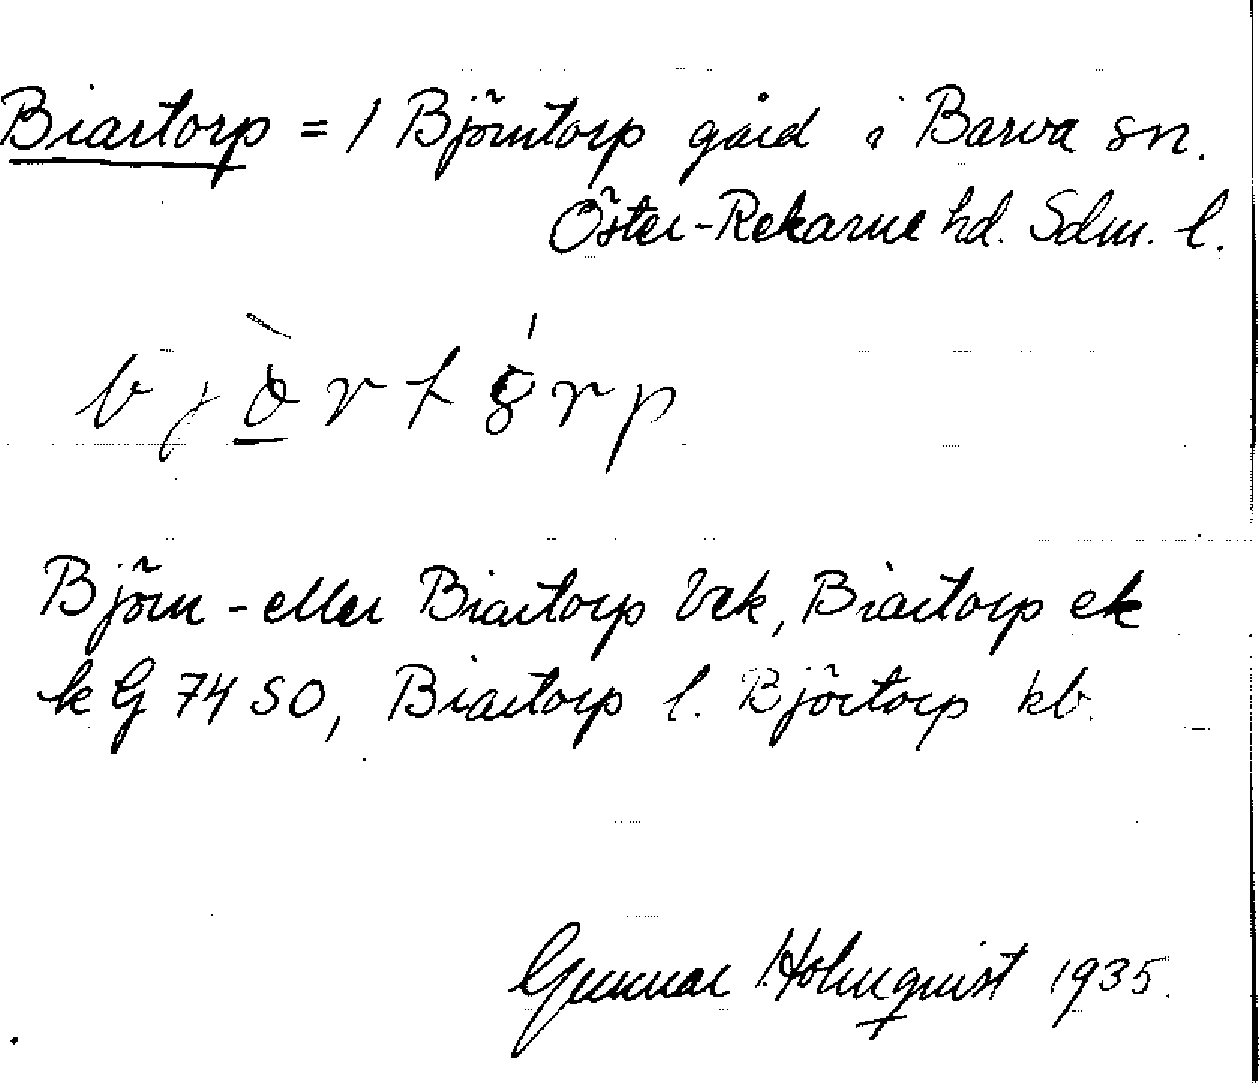 Biartorp = / Björntorp gård i Barva sn.
Öster-Rekarne hd. Sdm. l.
Björn- eller Biartorp Vek, Biartorp ek
k G 74 SO, Biartorp l. Björtorp kb.
Gunnar Holmquist 1935.